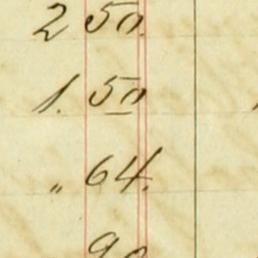 2 50.
1. 50
" 64.
90